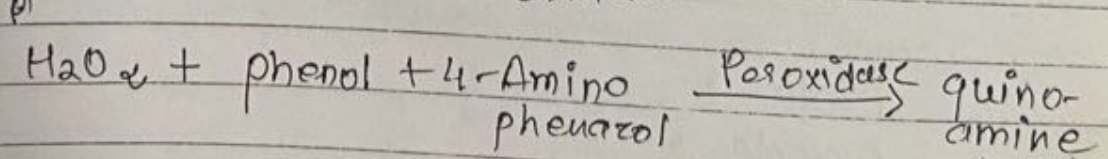 H2O2 + phenol + 4-Amino phenazol Peroxidase quino-amine